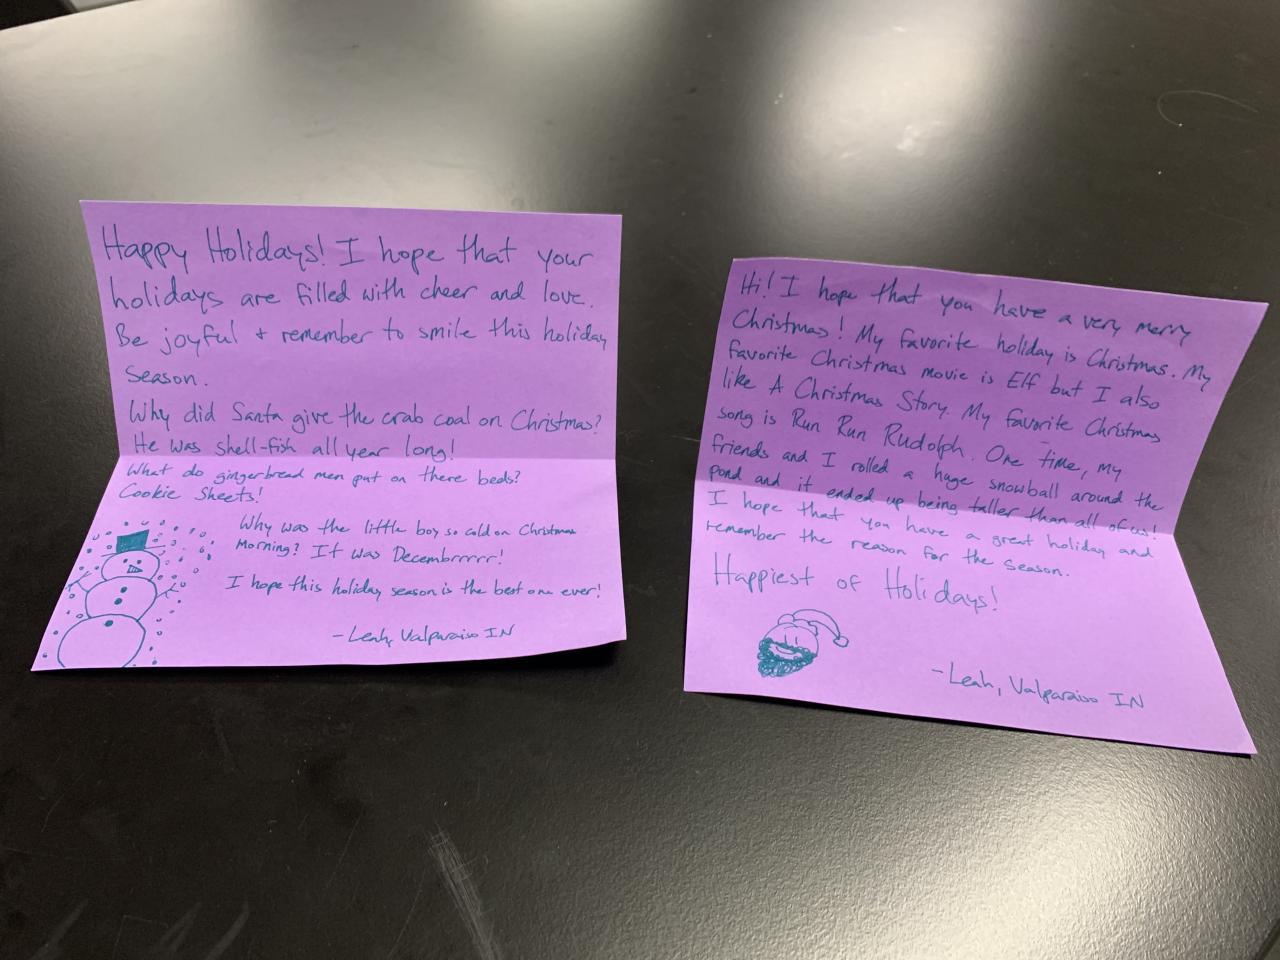 Happy Holidays! I hope that your
holidays are filled with cheer and love.
Be joyful + remember to smile this holiday
season.
Why did Santa give the crab coal on Christmas?
He was shell-fish all year long!
What do gingerbread men put on there beds?
Cookie Sheets!
Why was the little boy so cold on Christmas
Morning? It was Decembrrrrr!
I hope this holiday season is the best one ever!
-Leah, Valparaiso IN
Hi! I hope that you have a very merry
Christmas! My favorite holiday is Christmas. My
favorite Christmas movie is Elf but I also
like A Christmas Story. My favorite Christmas
song is Run Run Rudolph. One time, my
friends and I rolled a huge snowball around the
pond and it ended up being taller than all of us!
I hope that you have a great holiday and
remember the reason for the season.
Happiest of Holidays!
-Leah, Valparaiso IN